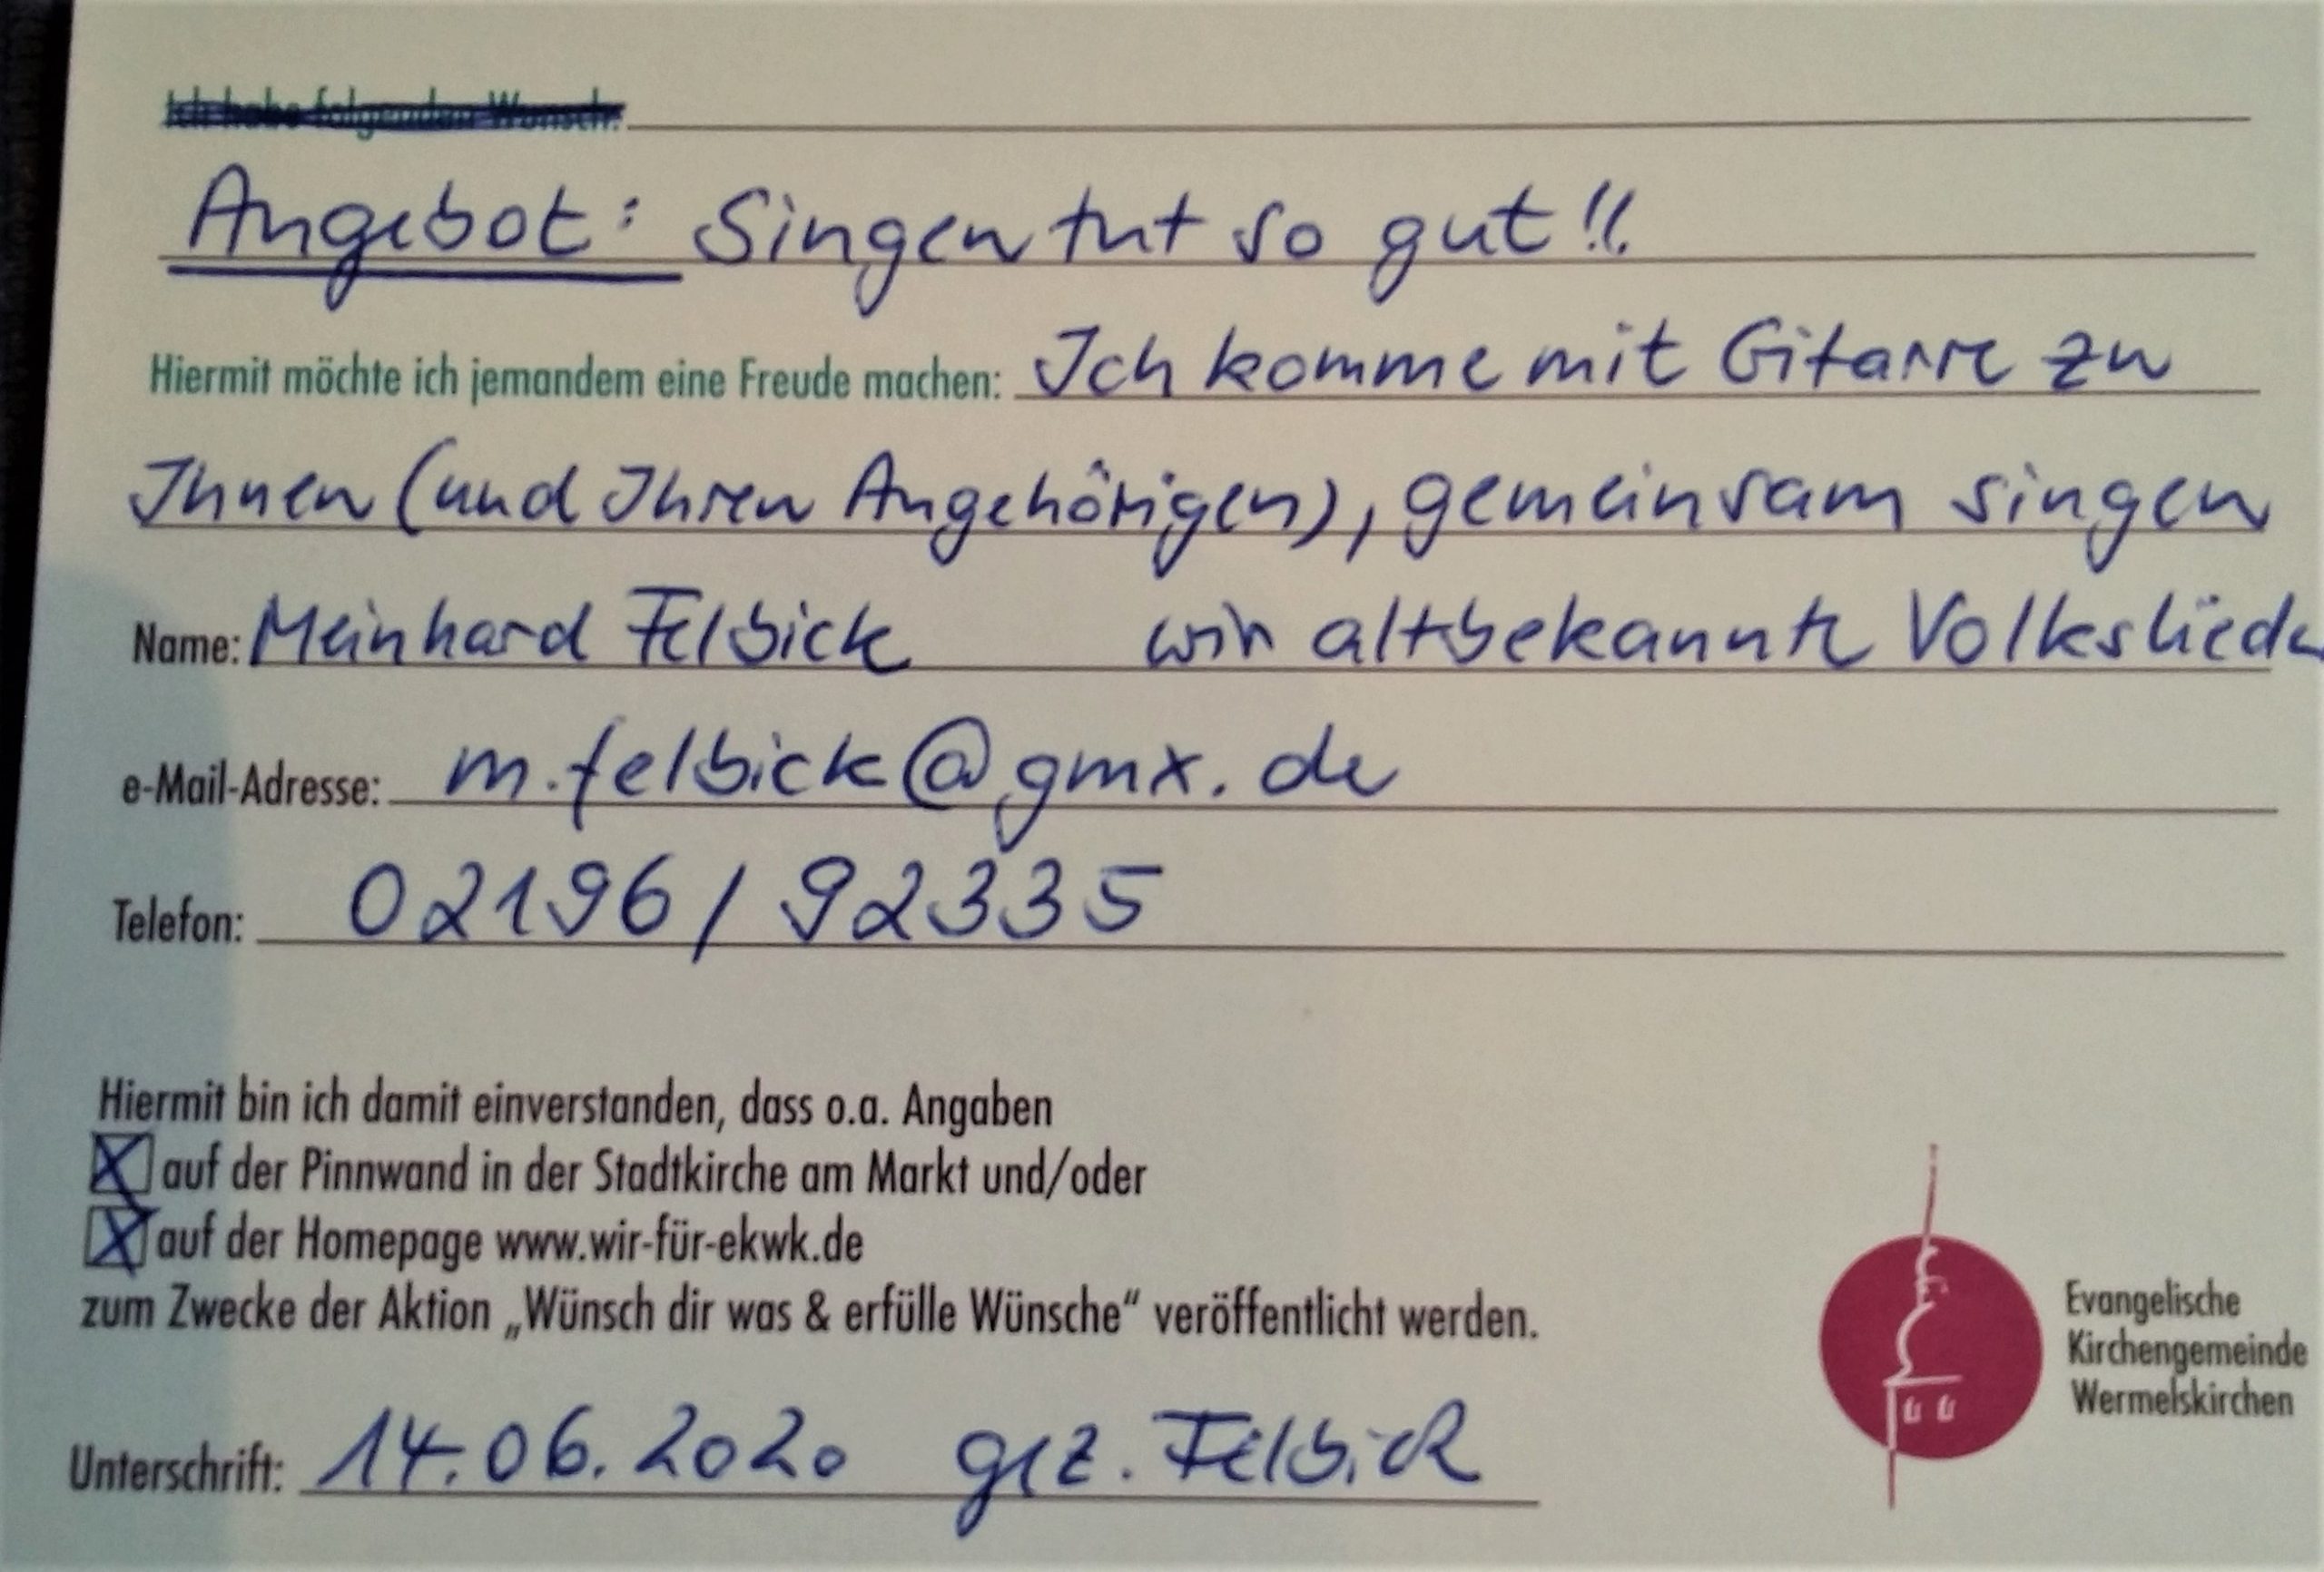 Ich habe folgenden Wunsch:
Angebot: Singen tut so gut!!
Hiermit möchte ich jemandem eine Freude machen: Ich komme mit Gitarre zu
Ihnen (und Ihren Angehörigen), gemeinsam singen
Name: Meinhard Felbick wir altbekannte Volkslieder
e-Mail-Adresse: m.felbick@gmx.de
Telefon: 02196/92335
Hiermit bin ich damit einverstanden, dass o.a. Angaben
X auf der Pinnwand in der Stadtkirche am Markt und/oder
X auf der Homepage www.wir-für-ekwk.de
zum Zwecke der Aktion „Wünsch dir was & erfülle Wünsche“ veröffentlicht werden.
Evangelische
Kirchengemeinde
Wermelskirchen
Unterschrift: 14.06.2020 gez. Felbick